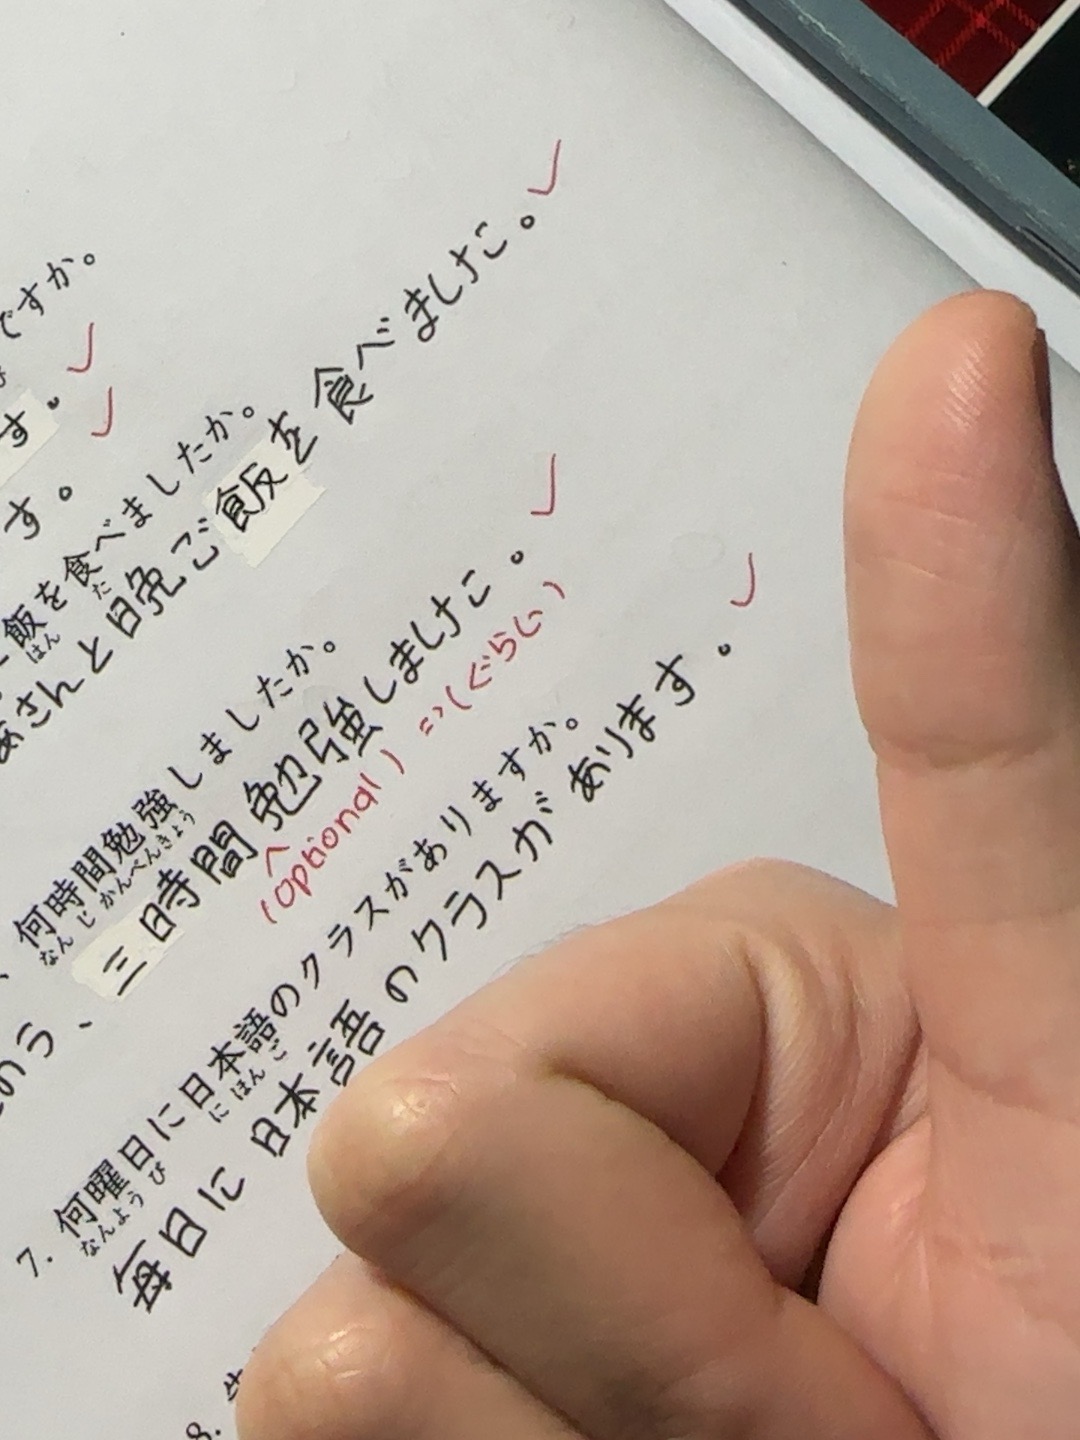 ですか。
す。
す。
飯を食べましたか。
はん た
あさんと晩ご飯を食べました。
何時間勉強しましたか。
なんじかんべんきょう
のう、三時間勉強しました。
(optional) => (ぐらい)
7. 何曜日に日本語のクラスがありますか。
なんようび にほんご
毎日に日本語のクラスがあります。
8.